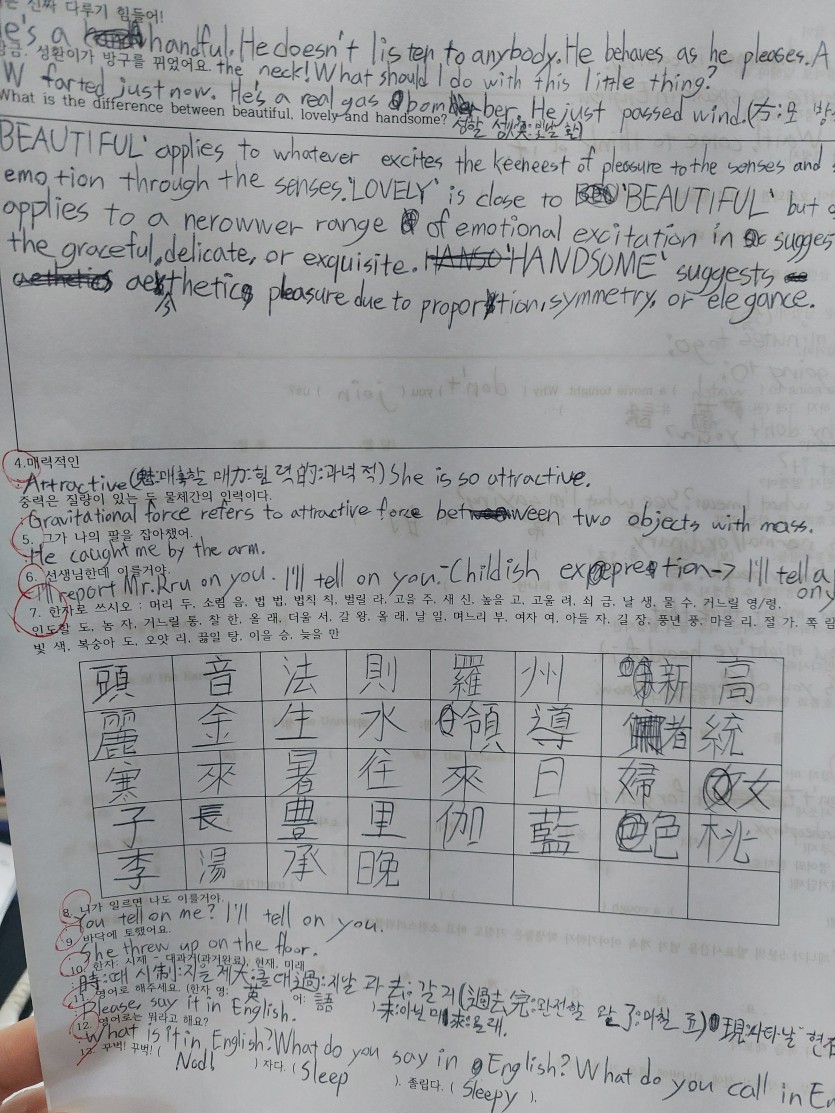 진짜 다루기 힘들어!
He's a handful. He doesn't listen to anybody. He behaves as he pleases. A
방금. 성환이가 방구를 뀌었어요. the neck! What should I do with this little thing?
W farted just now. He's a real gas bomber. He just passed wind. (方:모 방
What is the difference between beautiful, lovely and handsome?
BEAUTIFUL' applies to whatever excites the keeneest of pleasure to the senses and
emotion through the senses. 'LOVELY' is close to 'BEAUTIFUL' but
applies to a nerowwer range of emotional excitation in sugges
the graceful, delicate, or exquisite. 'HANDSOME' suggests
aesthetics pleasure due to proportion, symmetry, or elegance.
4. 매력적인
Attractive (魅:매혹할 매 力:힘 력 的:과녁 적) She is so attractive.
중력은 질량이 있는 두 물체간의 인력이다.
: Gravitational force refers to attractive force between two objects with mass.
5. 그가 나의 팔을 잡아챘어.
: He caught me by the arm.
6. 선생님한테 이를거야.
I'll report Mr. Ryu on you. I'll tell on you. - Childish expression -> I'll tell
on y
7. 한자로 쓰시오 : 머리 두, 소리 음, 법 법, 법칙 칙, 벌릴 라, 고을 주, 새 신, 높을 고, 고울 려, 쇠 금, 날 생, 물 수, 거느릴 영/령,
인도할 도, 놈 자, 거느릴 통, 찰 한, 올 래, 더울 서, 갈 왕, 올 래, 날 일, 며느리 부, 여자 여, 아들 자, 길 장, 풍년 풍, 마을 리, 절 가, 쪽
빛 색, 복숭아 도, 오얏 리, 끓일 탕, 이을 승, 늦을 만
頭 音 法 則 羅 州 新 高
麗 金 生 水 領 導 者 統
寒 來 暑 往 來 日 婦 女
子 長 豊 里 伽 藍 色 桃
李 湯 承 晩
8. 니가 이르면 나도 이를거야.
You tell on me? I'll tell on you.
9. 바닥에 토했어요.
She threw up on the floor.
10. 한자: 시제 - 대과거(과거완료), 현재, 미래
時:때 시 制:지을 제 大:클 대 過:지날 과 去:갈 거 (過去完:완전할 완 了:마칠 료) 現:나타날 현
11. 영어로 해주세요. (한자 영: 英 어: 語 ) 未:아닐 미 來:올 래.
: Please, say it in English.
12. 영어로는 뭐라고 해요?
: What is it in English? What do you say in English? What do you call in En
13. 꾸벅! 꾸벅! ( Nod! ) 자다. ( Sleep ). 졸립다. ( Sleepy ).